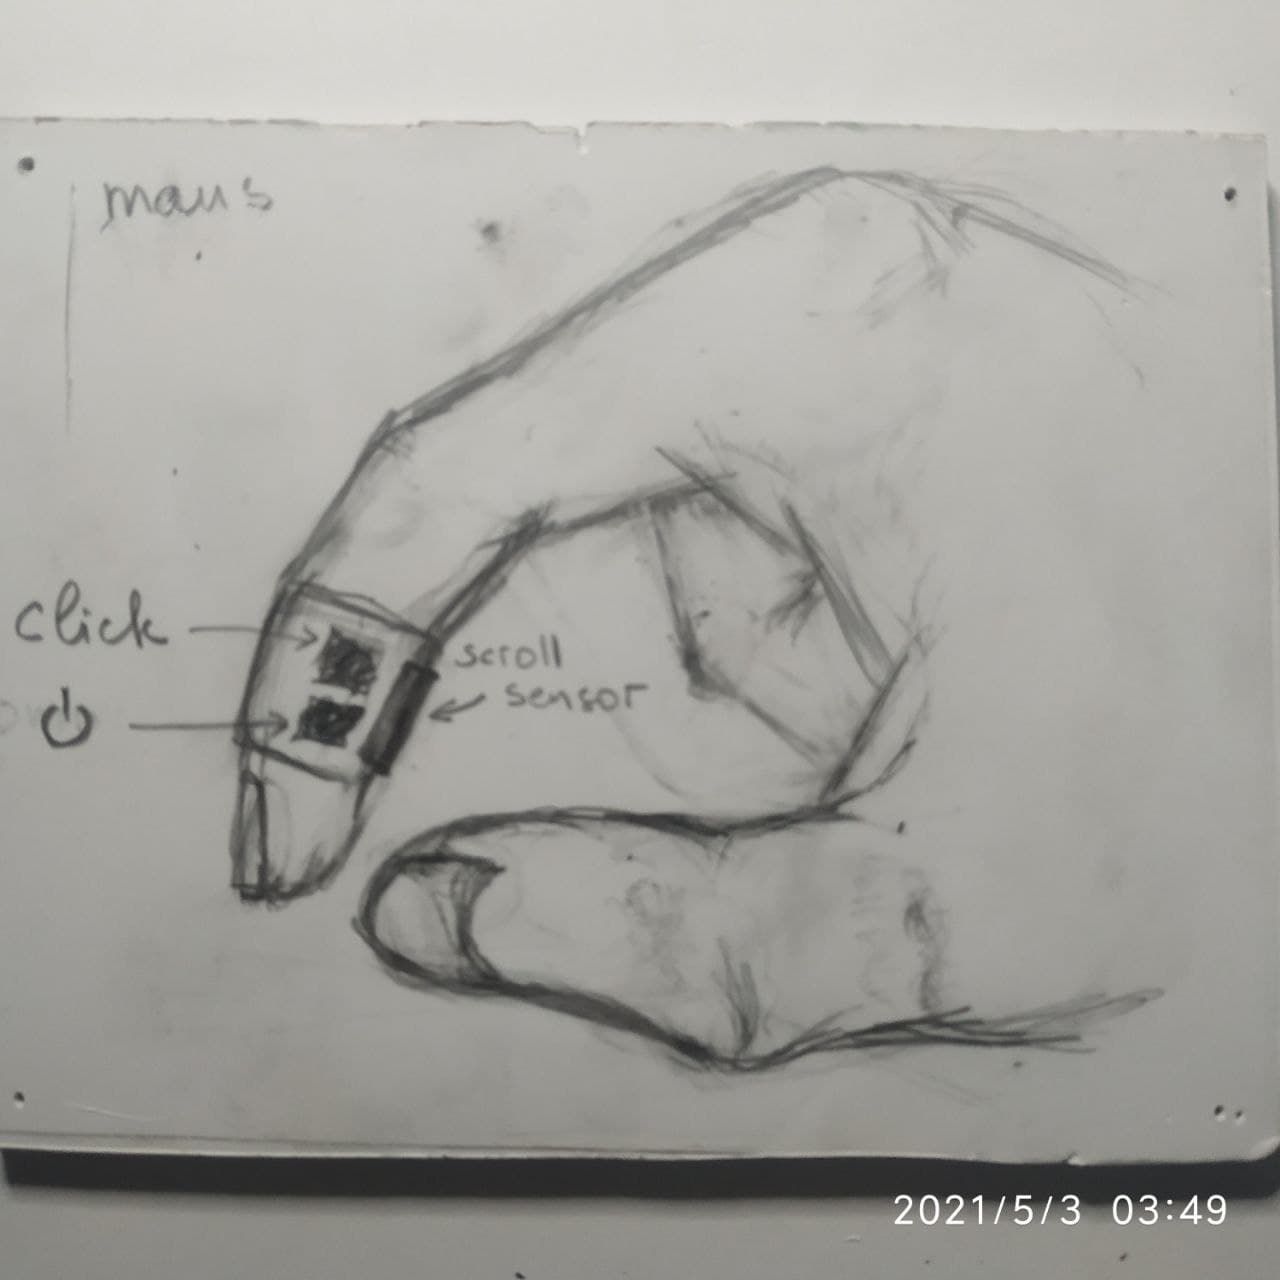 maus
click
scroll
sensor
2021/5/3 03:49